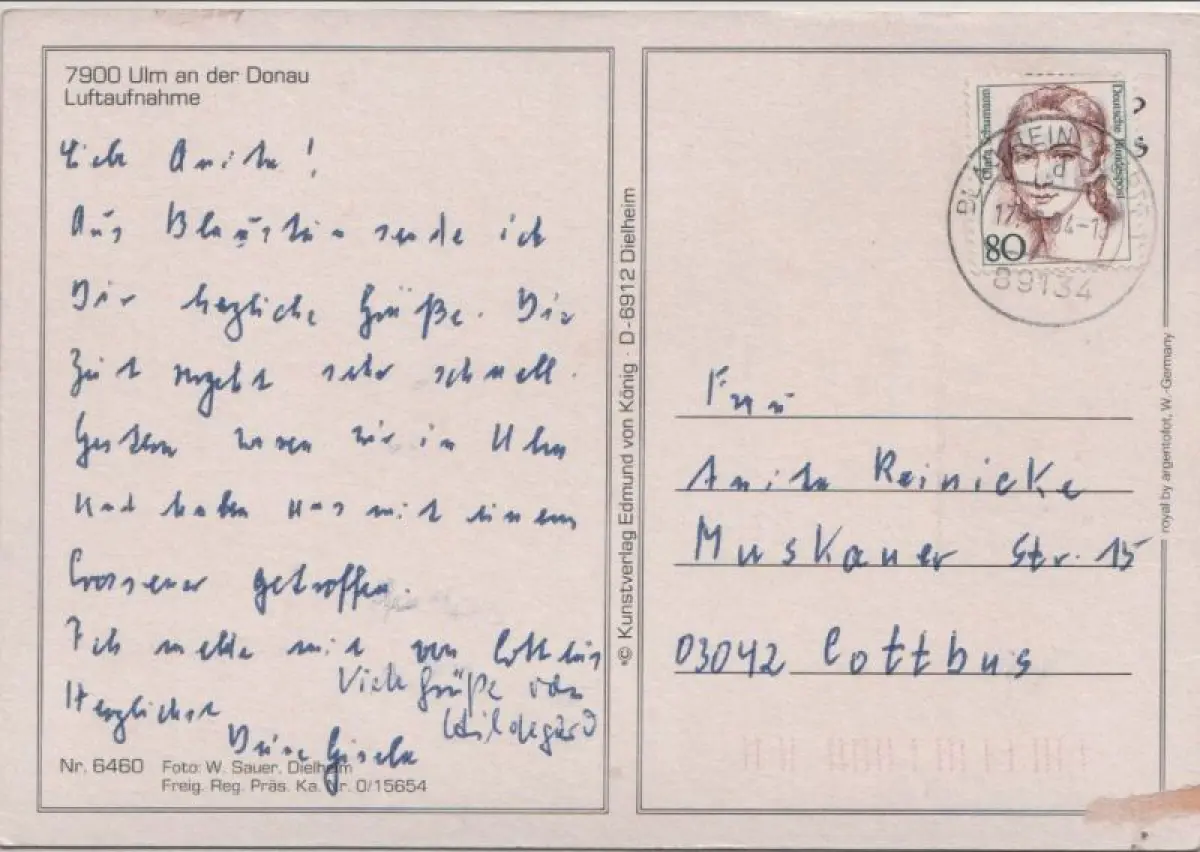 7900 Ulm an der Donau
Luftaufnahme
Liebe Anita!
Aus Blaustein sende ich
Dir herzliche Grüße. Die
Zeit vergeht sehr schnell.
Gestern waren wir in Ulm
und haben uns mit einem
Crossener getroffen.
Ich melde mich von Cottbus
Herzlichst
Deine Gisela
Viele Grüße von
Hildegard
Nr. 6460 Foto: W. Sauer, Dielheim
Freig. Reg. Präs. Ka. Nr. 0/15654
© Kunstverlag Edmund von König · D-6912 Dielheim
Clara Schumann
Deutsche Bundespost
80
89134
Frau
Anita Reinicke
Muskauer Str. 15
03042 Cottbus
royal by argentofot, W.-Germany